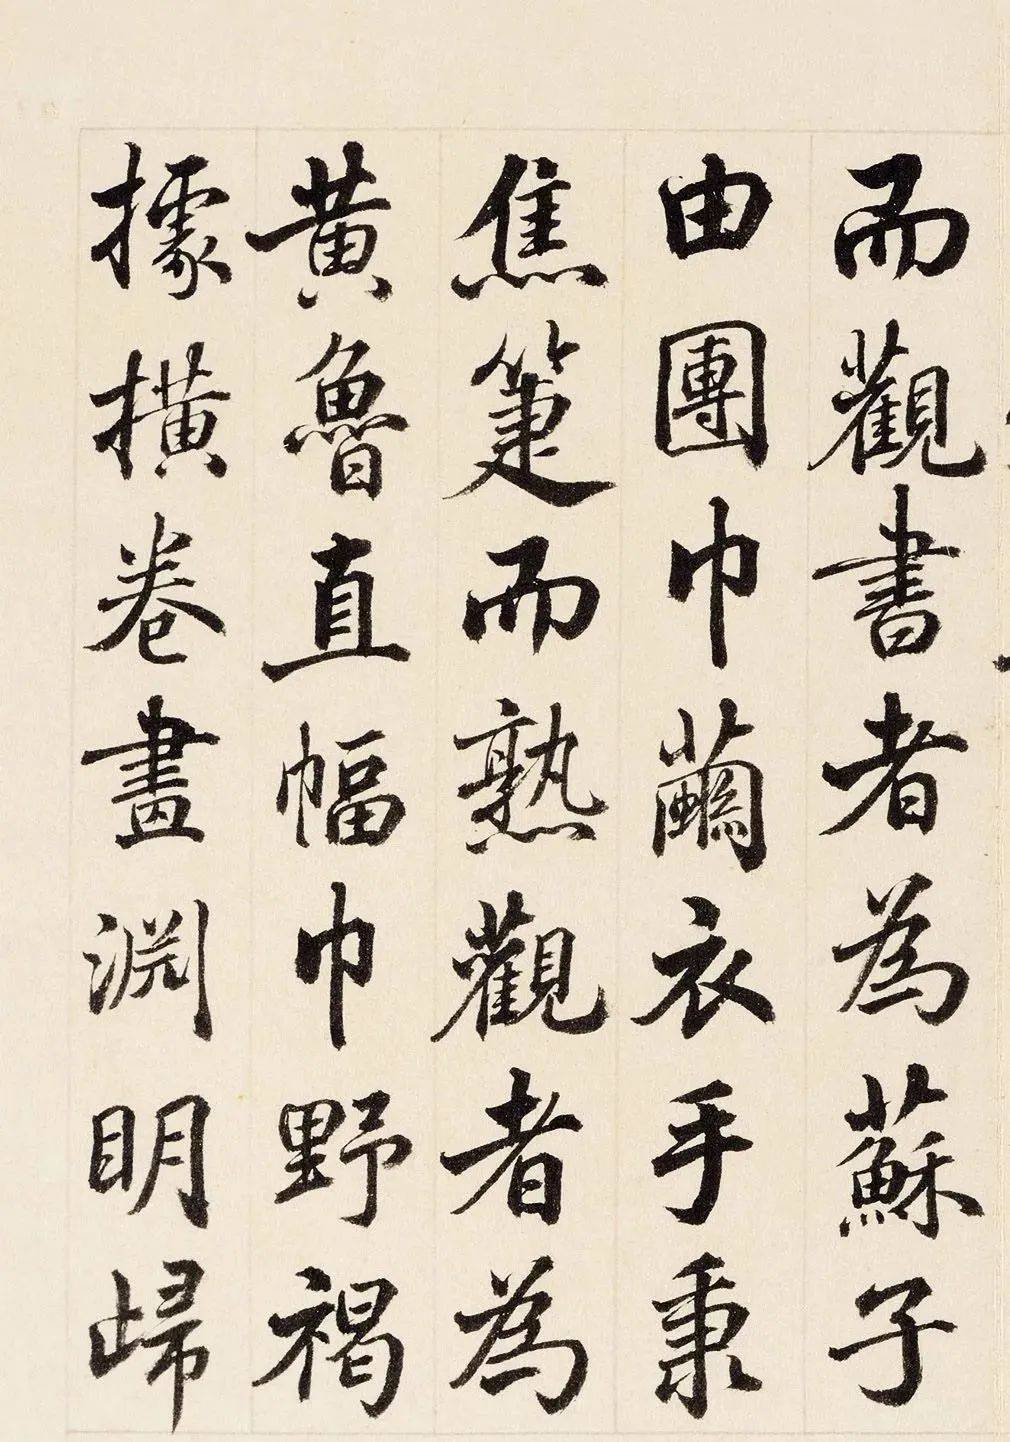 而觀書者為蘇子
由團巾繭衣手秉
焦箑而熟觀者為
黄魯直幅巾野褐
據橫卷畫淵明歸